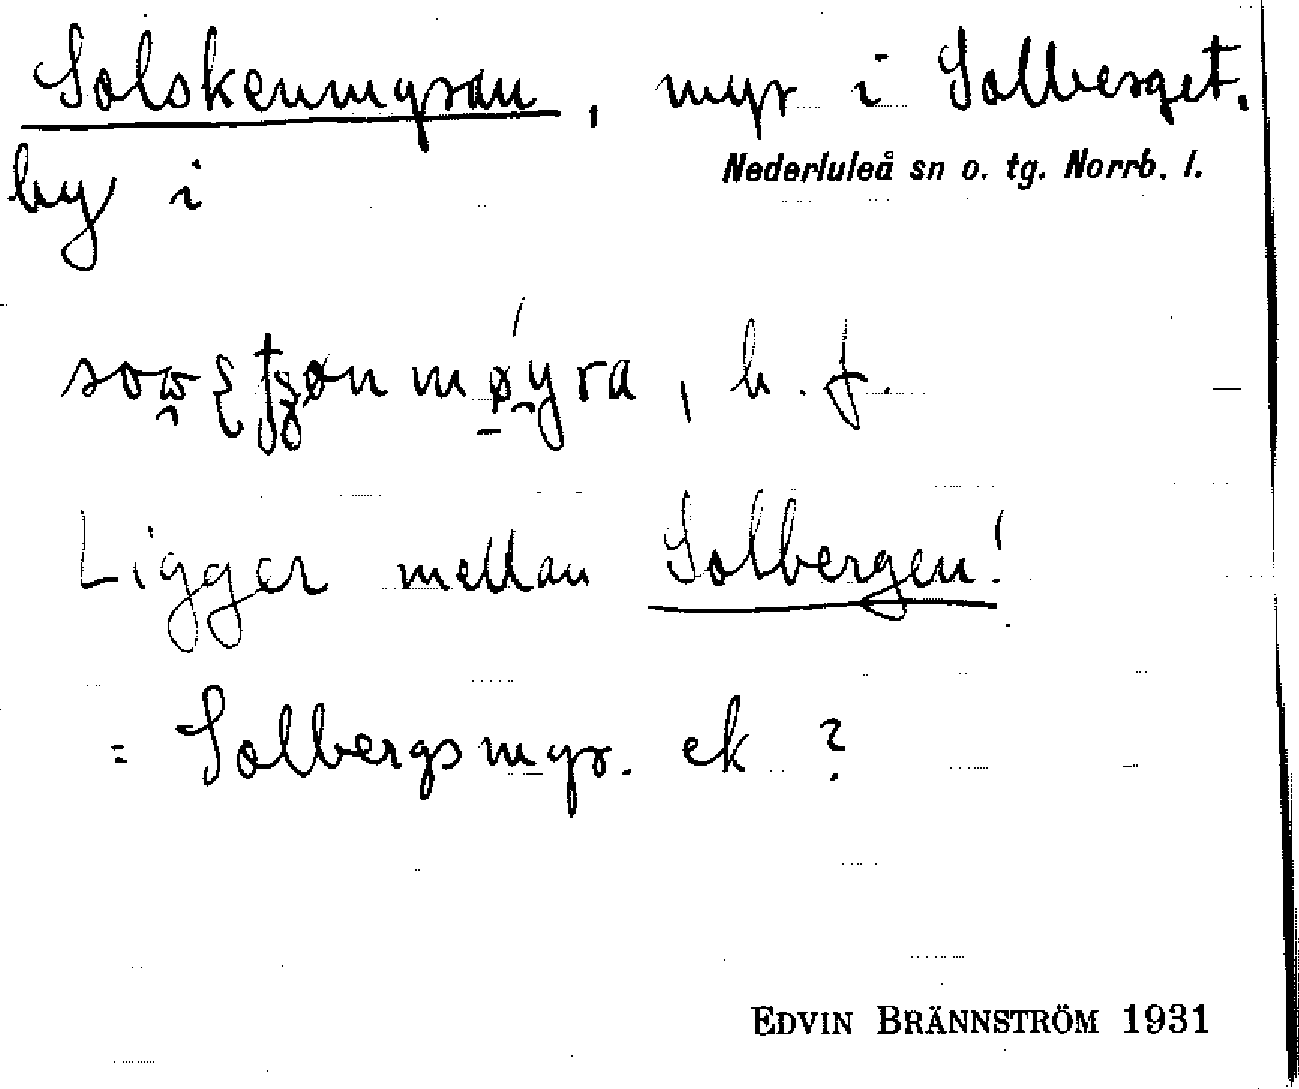 Solskenmyran, myr i Solberget,
Nederluleå sn o. tg. Norrb. l.
by i
h. f.
Ligger mellan Solbergen!
= Solbergsmyr. ek ?
EDVIN BRÄNNSTRÖM 1931